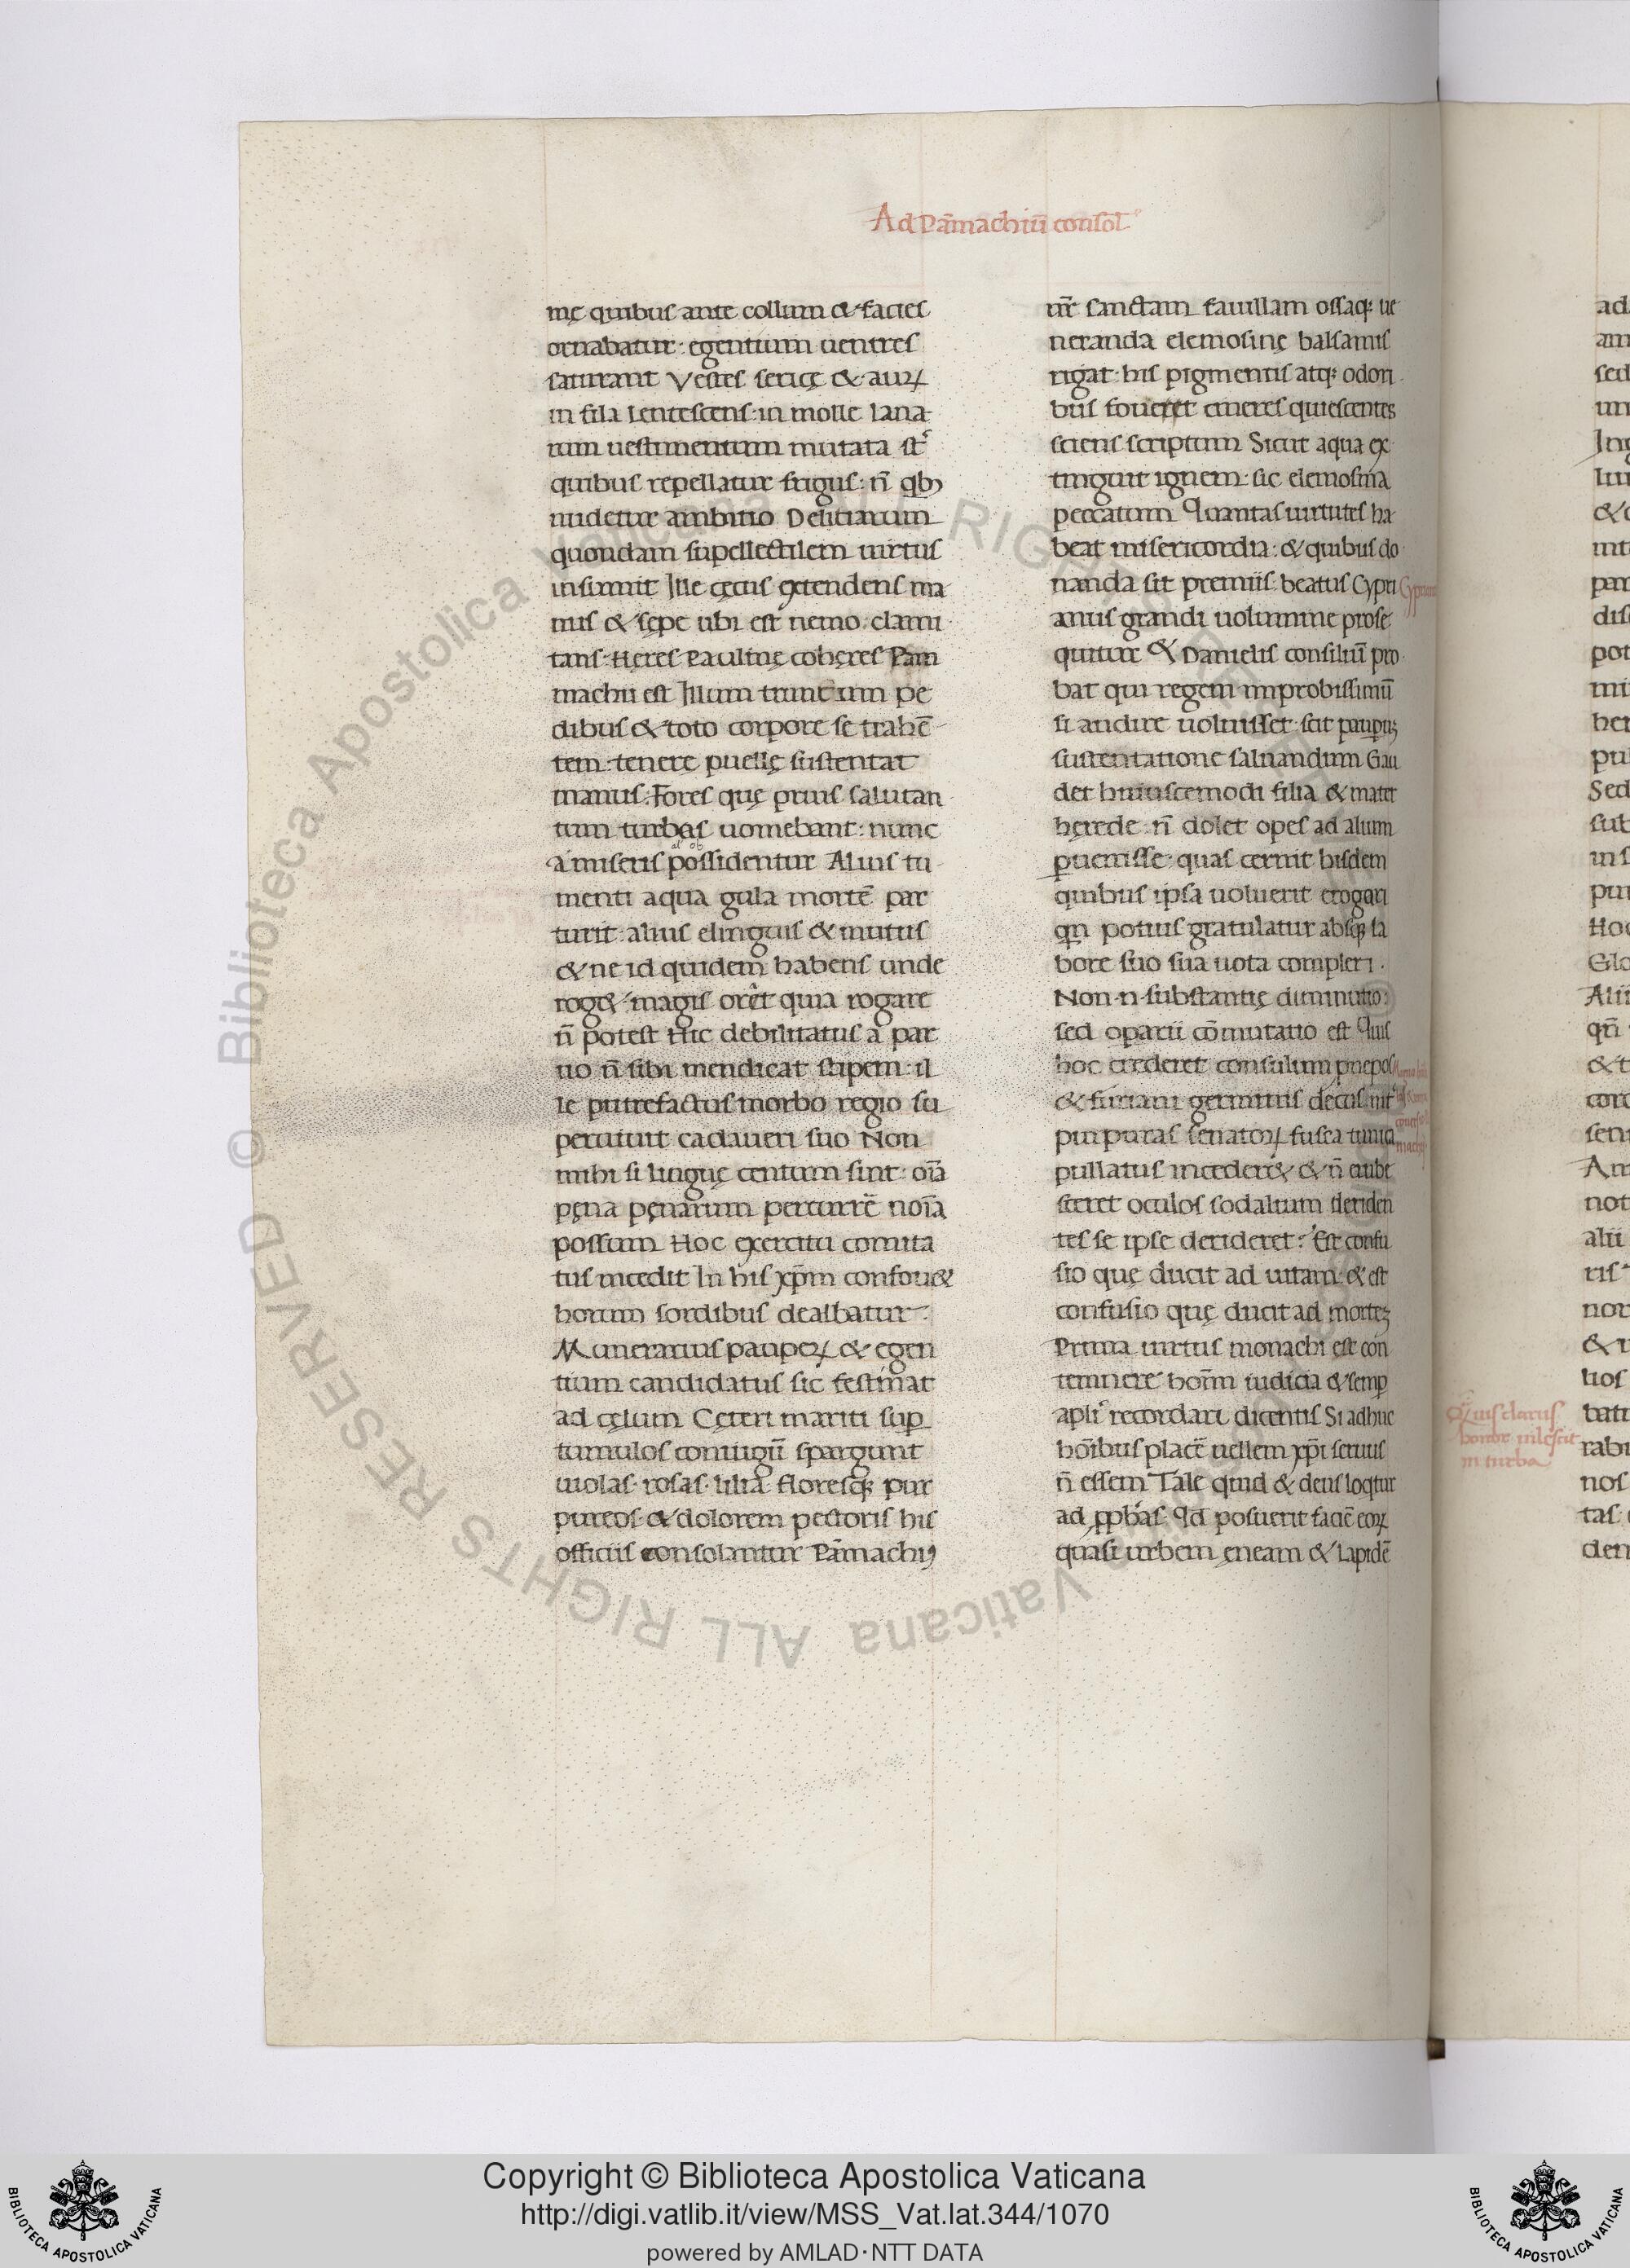 Ad Pāmachiū consol̄
mę quibus ante collum & facies
ornabatur: egentium uentres
saturant Vestes sericę & auꝝ
in fila lentescens: in molle lana
rum uestimentum mutata st̄
quibus repellatur frigus: n̄ qb;
nudetur ambitio Delitiarum
quondam supellectilem uirtus
insumit Ille cęcus extendens ma
nus & sępe ubi est nemo. clami
tans. Heres Paulinę coheres Pam
machii est Illum truncum pe
dibus & toto corpore se trahē
tem. tenerę puellę sustentat
manus. Fores quę prius salutan
tum turbas uomebant: nunc
al' ob
a miseris possidentur Alius tu
menti aqua gula mortē par
turit: alius elinguis & mutus
& ne id quidem habens unde
roget magis orēt quia rogare
n̄ potest Hic debilitatus a par
uo n̄ sibi mendicat stipem: il
le putrefactus morbo regio su
peruiuit cadaueri suo Non
mihi si linguę centum sint: oīa
pęna pęnarum percurrē noīa
possum Hoc exercitu comita
tus incedit In his xp̄m confouet
horum sordibus dealbatur.
Munerarius paupeꝝ & egen
tium candidatus sic festinat
ad cęlum Cęteri mariti suꝑ
tumulos coniugū spargunt
uiolas. rosas. lilia. floresq; pur
pureos. & dolorem pectoris his
officiis consolantur Pāmachiꝰ
nr̄ sanctam fauillam ossaq; ue
neranda elemosinę balsamis
rigat. his pigmentis atq; odori
bus fouet cineres quiescentes
sciens scriptum Sicut aqua ex
tinguit ignem: sic elemosina
peccatum Quantas uirtutes ha
beat misericordia: & quibus do
nanda sit premiis. beatus Cypri
Cyprianus
anus grandi uolumine prose
quitur & Danielis consiliū pro
bat qui regem improbissimū
si audire uoluisset. scit pauꝑuꝫ
sustentatione saluandum Gau
det huiuscemodi filia & mater
hęrede. n̄ dolet opes ad alium
ꝑuenisse. quas cernit hisdem
quibus ipsa uoluerit erogari
qn potius gratulatur absq; la
bore suo sua uota compleri.
Non .n. substantię diminutio:
sed operū cōmutatio est Quis
hoc crederet consulum pnepos
& furiani germinis decus. int̄
purpuras senatoꝝ fusca tunica
pullatus incederet & n̄ erube
sceret oculos sodalium deriden
tes se ipse derideret? Est confu
sio quę ducit ad uitam. & est
confusio quę ducit ad morteꝫ
Prima uirtus monachi est con
temnere hoīm iudicia & semꝑ
apl̄i recordari dicentis Si adhuc
hoībus placē uellem xp̄i seruus
n̄ essem Tale quid & deus loqitur
ad ꝓphas. Qd posuerit faciē eoꝝ
quasi urbem ęneam & lapidē
Quis clarus
homo uilescit
in turba
Copyright © Biblioteca Apostolica Vaticana
http://digi.vatlib.it/view/MSS_Vat.lat.344/1070
powered by AMLAD·NTT DATA
BIBLIOTECA APOSTOLICA VATICANA
BIBLIOTECA APOSTOLICA VATICANA
© Biblioteca Apostolica Vaticana ALL RIGHTS RESERVED